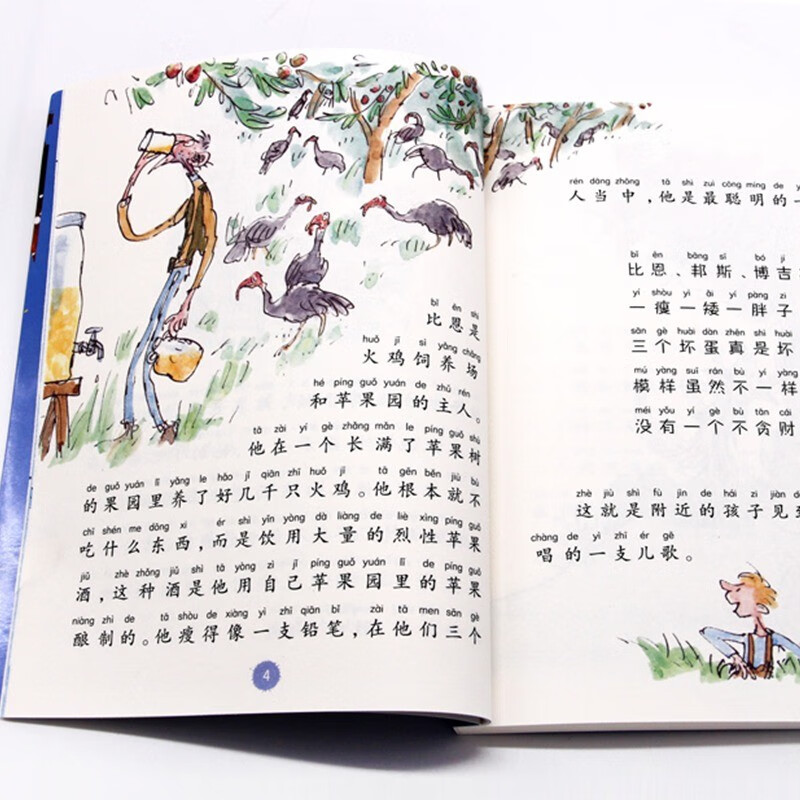 bǐ ēn shì
比恩是
huǒ jī sì yǎng chǎng
火鸡饲养场
hé píng guǒ yuán de zhǔ rén
和苹果园的主人。
tā zài yí gè zhǎng mǎn le píng guǒ shù
他在一个长满了苹果树
de guǒ yuán lǐ yǎng le hǎo jǐ qiān zhī huǒ jī tā gēn běn jiù bù
的果园里养了好几千只火鸡。他根本就不
chī shén me dōng xi ér shì yǐn yòng dà liàng de liè xìng píng guǒ
吃什么东西,而是饮用大量的烈性苹果
jiǔ zhè zhǒng jiǔ shì tā yòng zì jǐ píng guǒ yuán lǐ de píng guǒ
酒,这种酒是他用自己苹果园里的苹果
niàng zhì de tā shòu de xiàng yì zhī qiān bǐ zài tā men sān gè
酿制的。他瘦得像一支铅笔,在他们三个
4
rén dāng zhōng tā shì zuì cōng míng de
人当中,他是最聪明的
bǐ ēn bāng sī bó jí
比恩、邦斯、博吉
yí shòu yì ǎi yí pàng zi
一瘦一矮一胖子
sān gè huài dàn zhēn shì huài
三个坏蛋真是坏
mú yàng suī rán bù yí yàng
模样虽然不一样
méi yǒu yí gè bù tān cái
没有一个不贪财
zhè jiù shì fù jìn de hái zi jiàn
这就是附近的孩子见到
chàng de yì zhī ér gē
唱的一支儿歌。